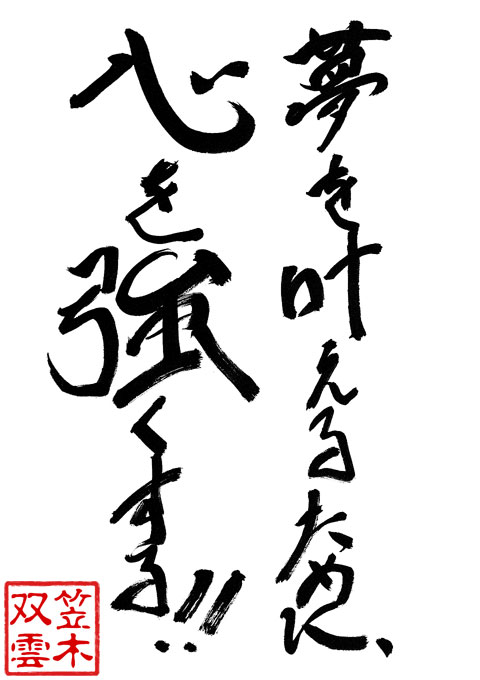 夢を叶えるために、
心を強くする!!
笠木
双雲